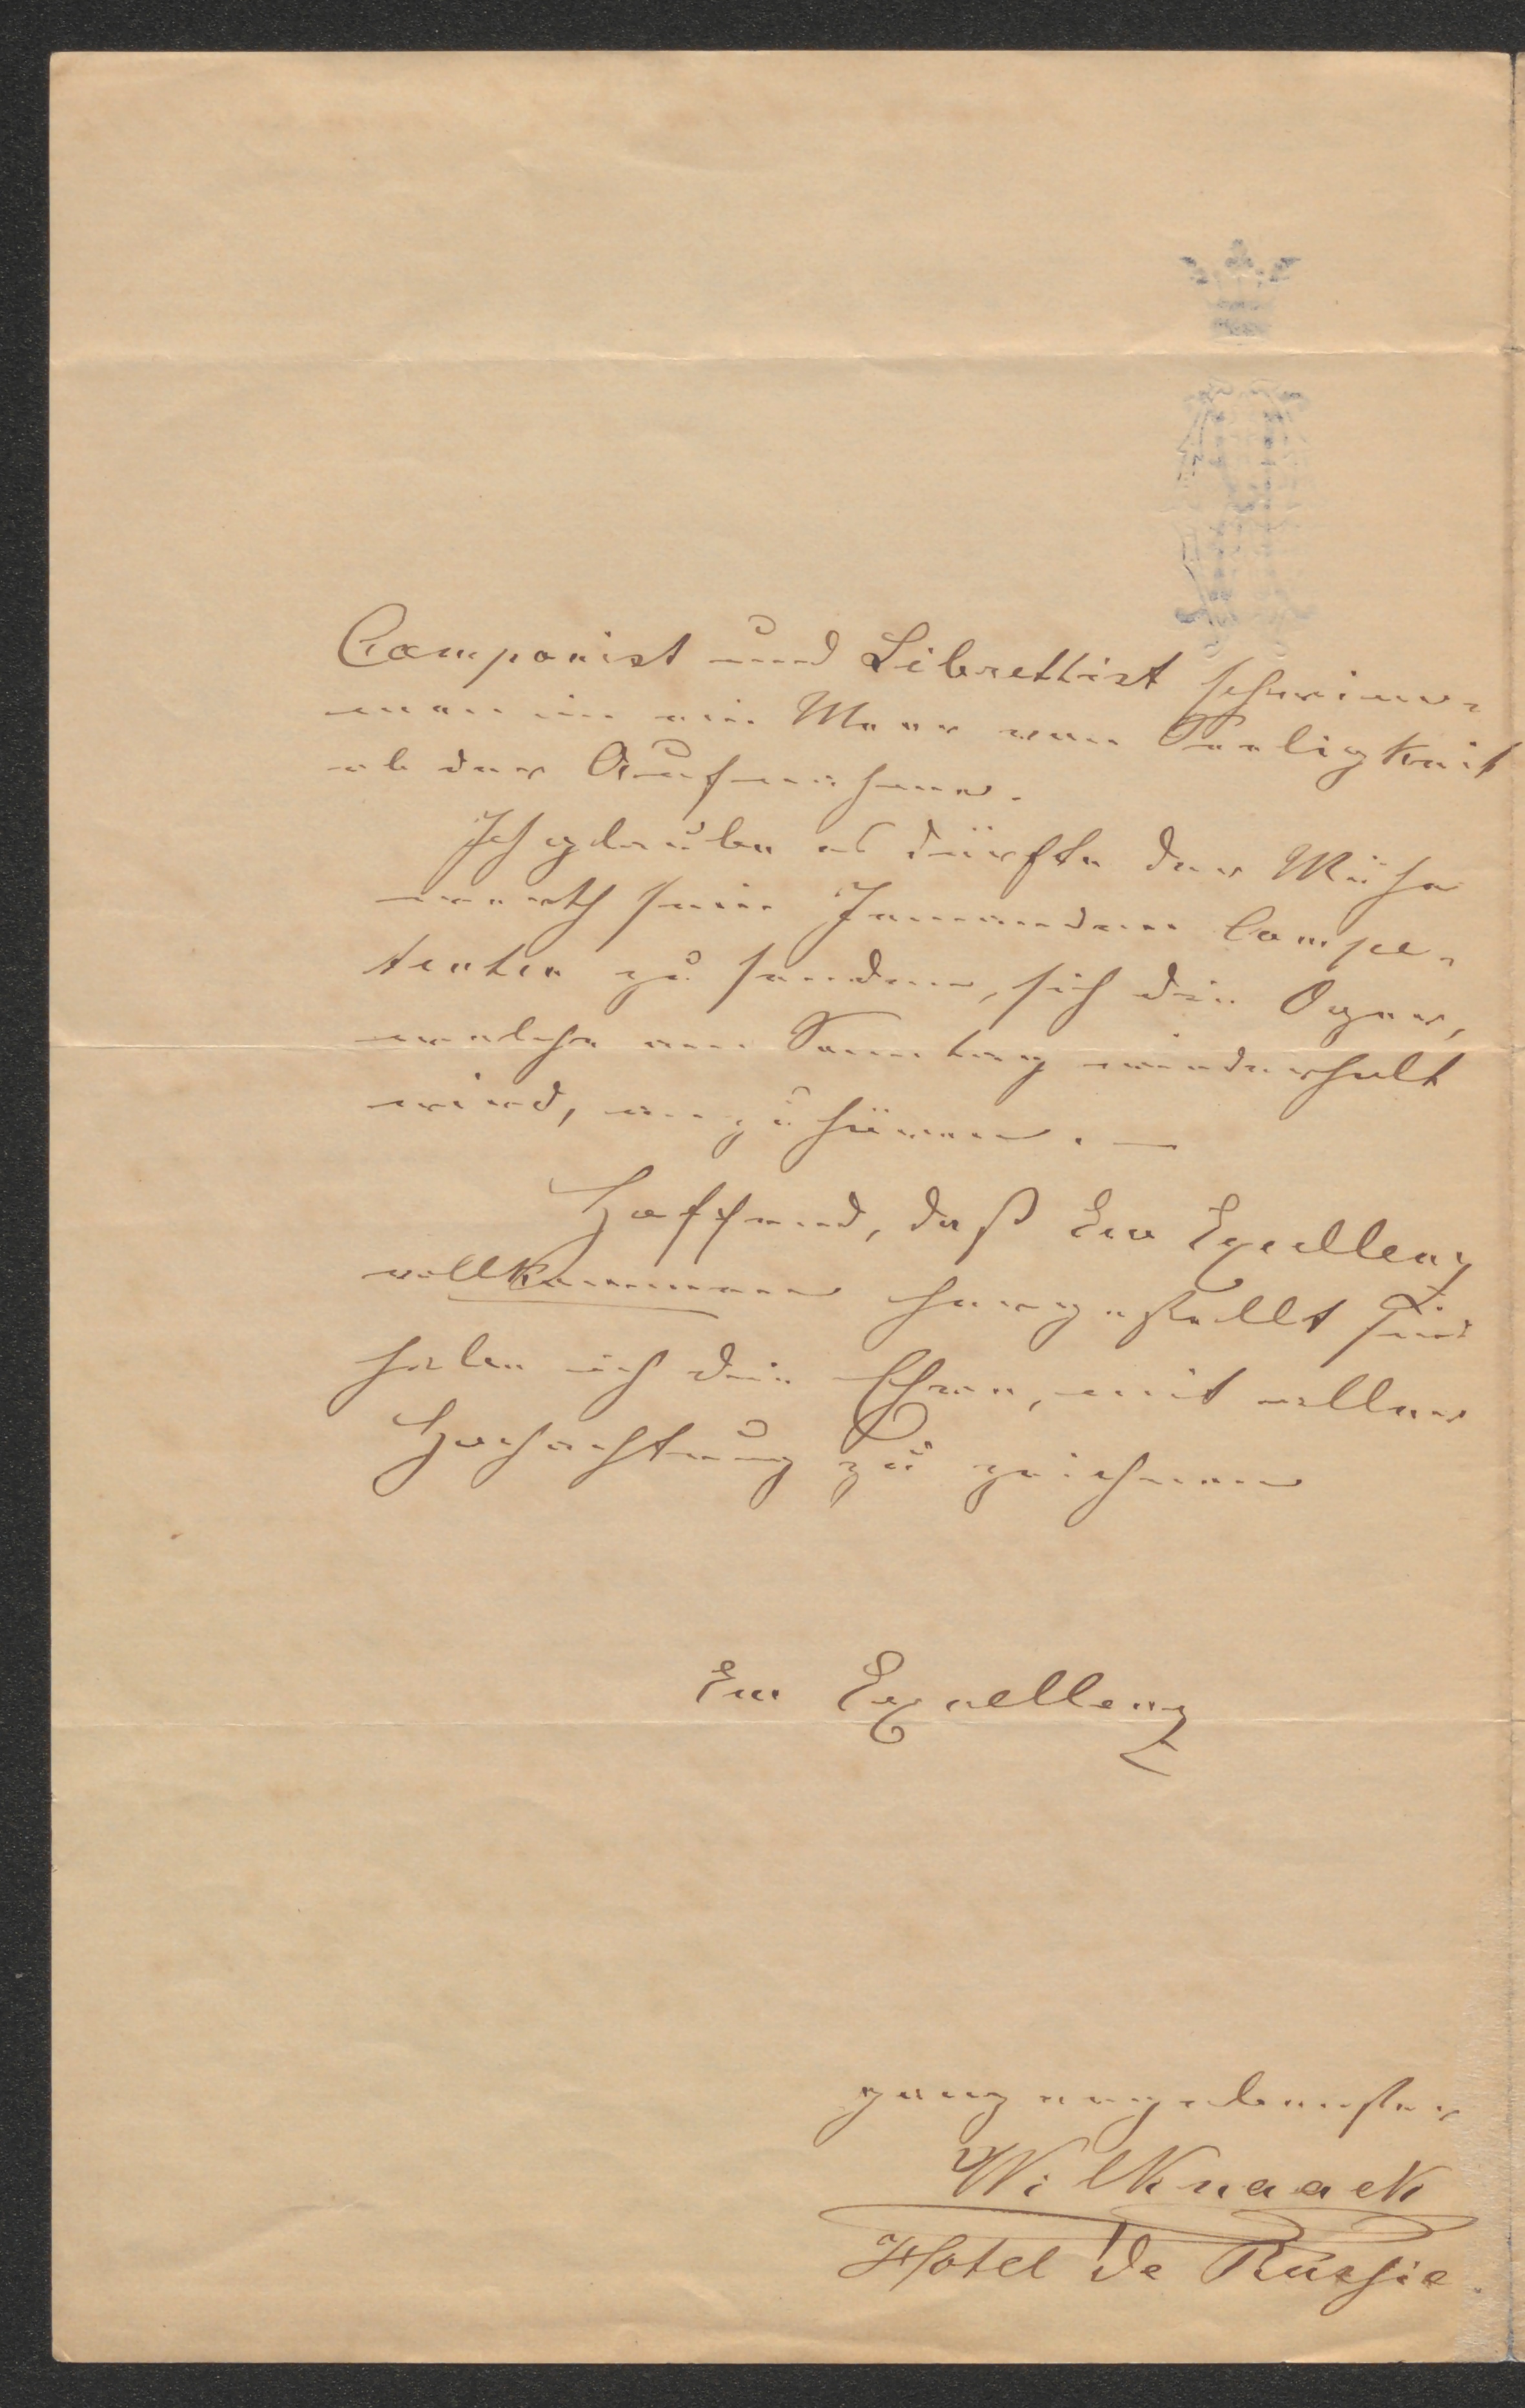 Componist und Librettist schwim-
men in ein Meer von Seeligkeit
ob der Aufnahme.
Ich glaube es dürfte der Mühe
werth sein Jemandem Compe-
tenten zu senden, sich die Oper,
welche am Sonntag wiederholt
wird, anzuhören. —
Hoffend, daß Eu Excellenz
vollkommen hergestellt sind
habe ich die Ehre, mit aller
Hochachtung zu zeichnen
Eu Excellenz
ganz ergebenster
Wil Knaack
Hotel de Russie.